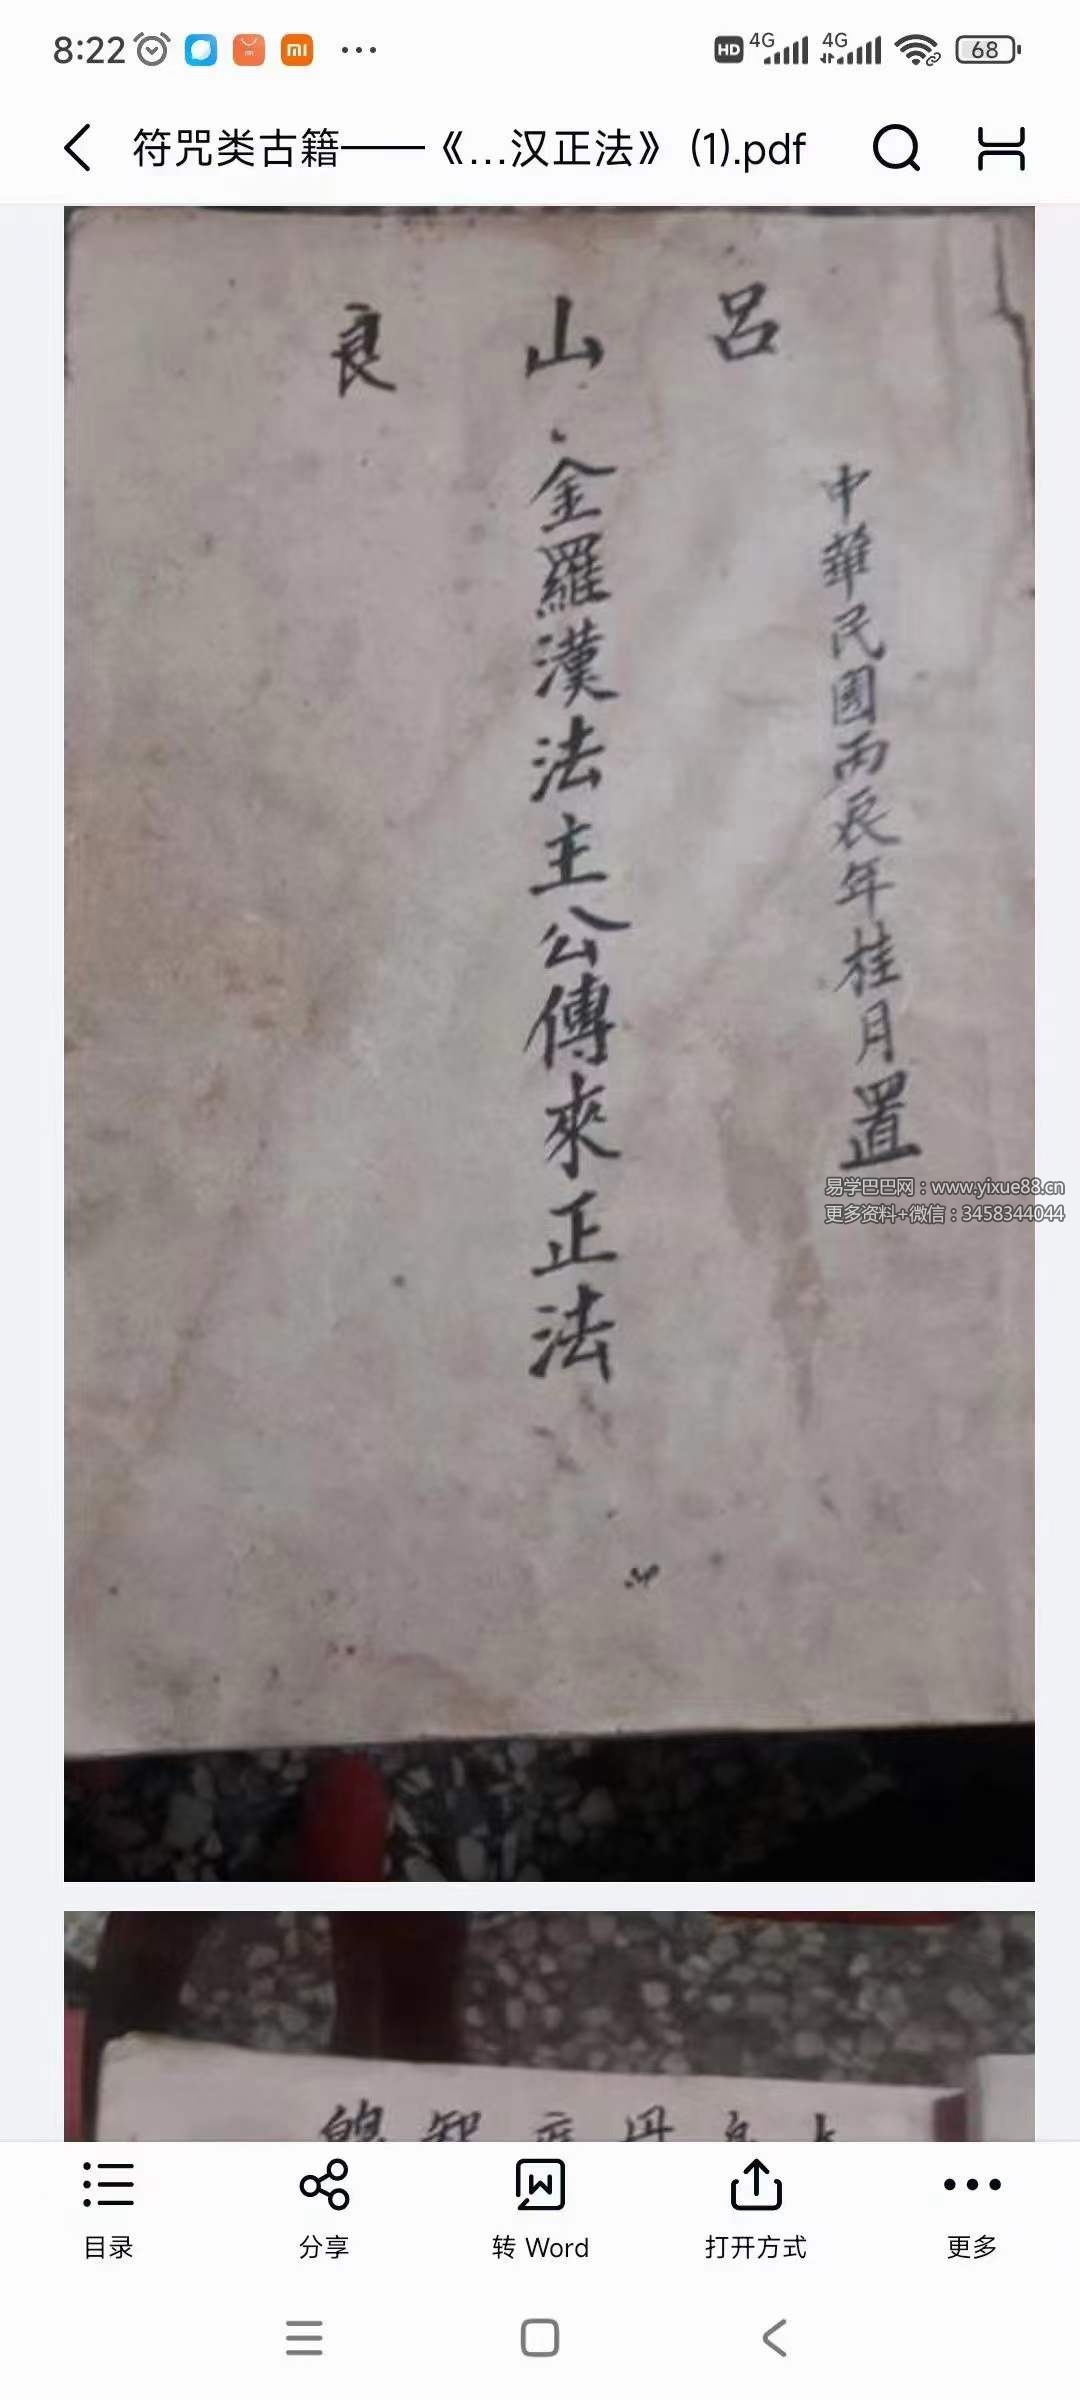 8:22
HD 4G 4G 68
符咒类古籍——《...汉正法》 (1).pdf
呂山良
中華民國丙辰年桂月置
金羅漢法主公傳來正法
易学巴巴网：www.yixue88.cn
更多资料+微信：3458344044
目录
分享
转 Word
打开方式
更多